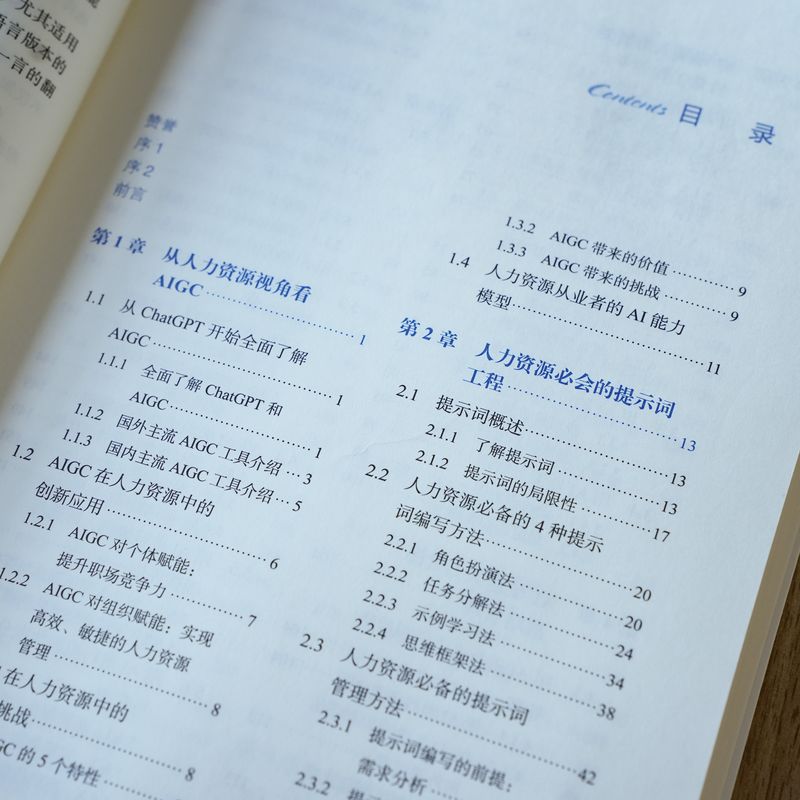 尤其适用
言版本的
一言的翻
Contents 目 录
赞誉
序 1
序 2
前言
第 1 章 从人力资源视角看
AIGC 1
1.1 从 ChatGPT 开始全面了解
AIGC 1
1.1.1 全面了解 ChatGPT 和
AIGC 1
1.1.2 国外主流 AIGC 工具介绍 3
1.1.3 国内主流 AIGC 工具介绍 5
1.2 AIGC 在人力资源中的
创新应用 6
1.2.1 AIGC 对个体赋能：
提升职场竞争力 7
1.2.2 AIGC 对组织赋能：实现
高效、敏捷的人力资源
管理 8
在人力资源中的
挑战 8
GC 的 5 个特性
1.3.2 AIGC 带来的价值 9
1.3.3 AIGC 带来的挑战 9
1.4 人力资源从业者的 AI 能力
模型 11
第 2 章 人力资源必会的提示词
工程 13
2.1 提示词概述 13
2.1.1 了解提示词 13
2.1.2 提示词的局限性 17
2.2 人力资源必备的 4 种提示
词编写方法 20
2.2.1 角色扮演法 20
2.2.2 任务分解法 24
2.2.3 示例学习法 34
2.2.4 思维框架法 38
2.3 人力资源必备的提示词
管理方法 42
2.3.1 提示词编写的前提：
需求分析
2.3.2